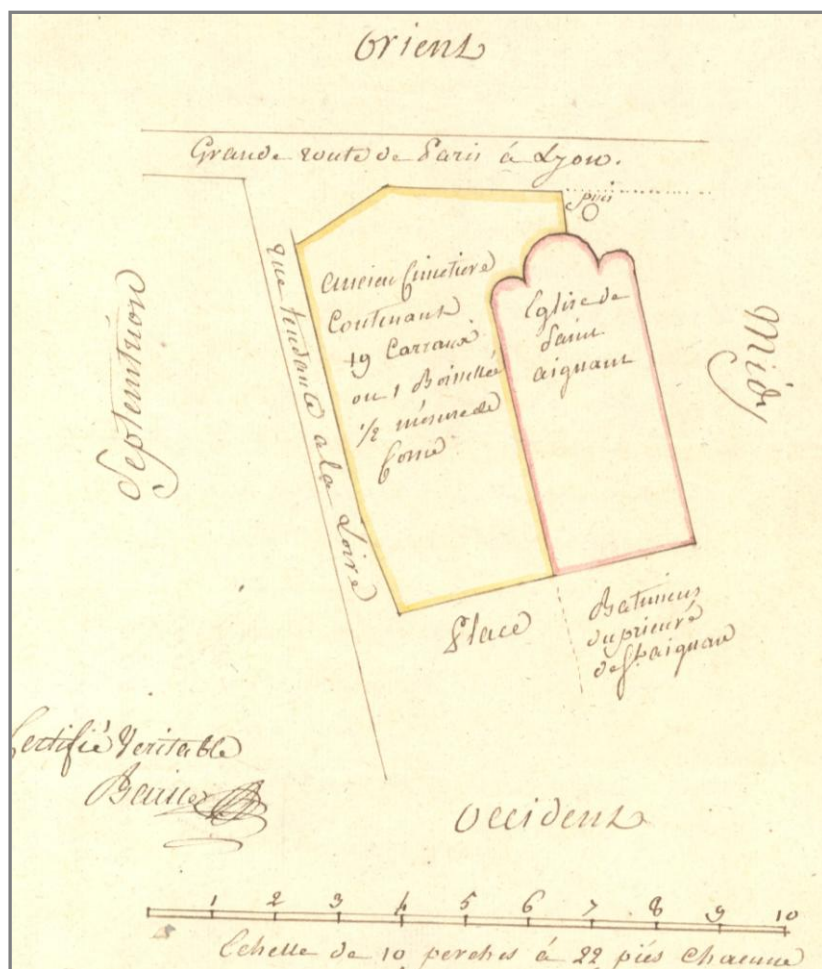 Orient
Grande route de Paris à Lyon.
puis
rue tendante a la Loire
ancien Cimetiere
Contenant
19 Carraux
ou 1 Boissellée
1/2 mesure de
Cosne
Eglise de
Saint
aignant
Septentrion
Midy
Place
Batimens
du prieuré
de St. aignan
Certifié Veritable
Occident
1 2 3 4 5 6 7 8 9 10
Echelle de 10 perches à 22 piés chacune